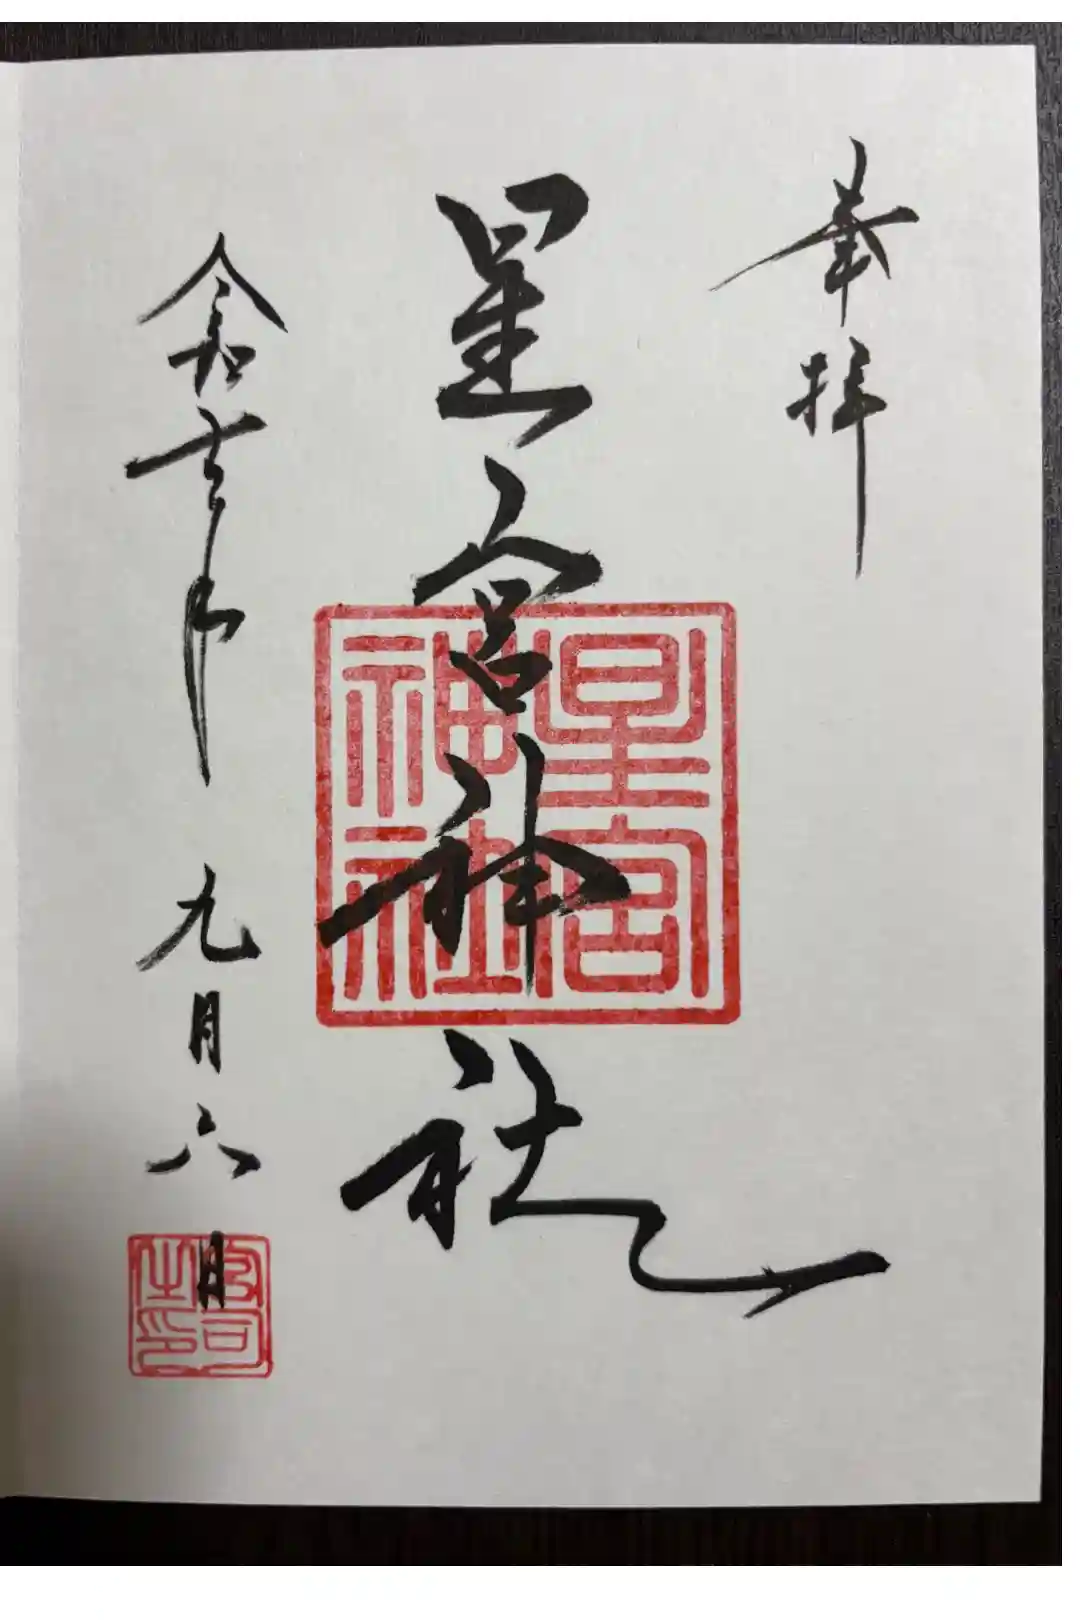 奉拝
星宮神社
星宮
神社
令和 年九月六日
宮司
之印